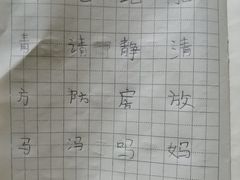 青 请 静 清
方 防 房 放
马 冯 吗 妈